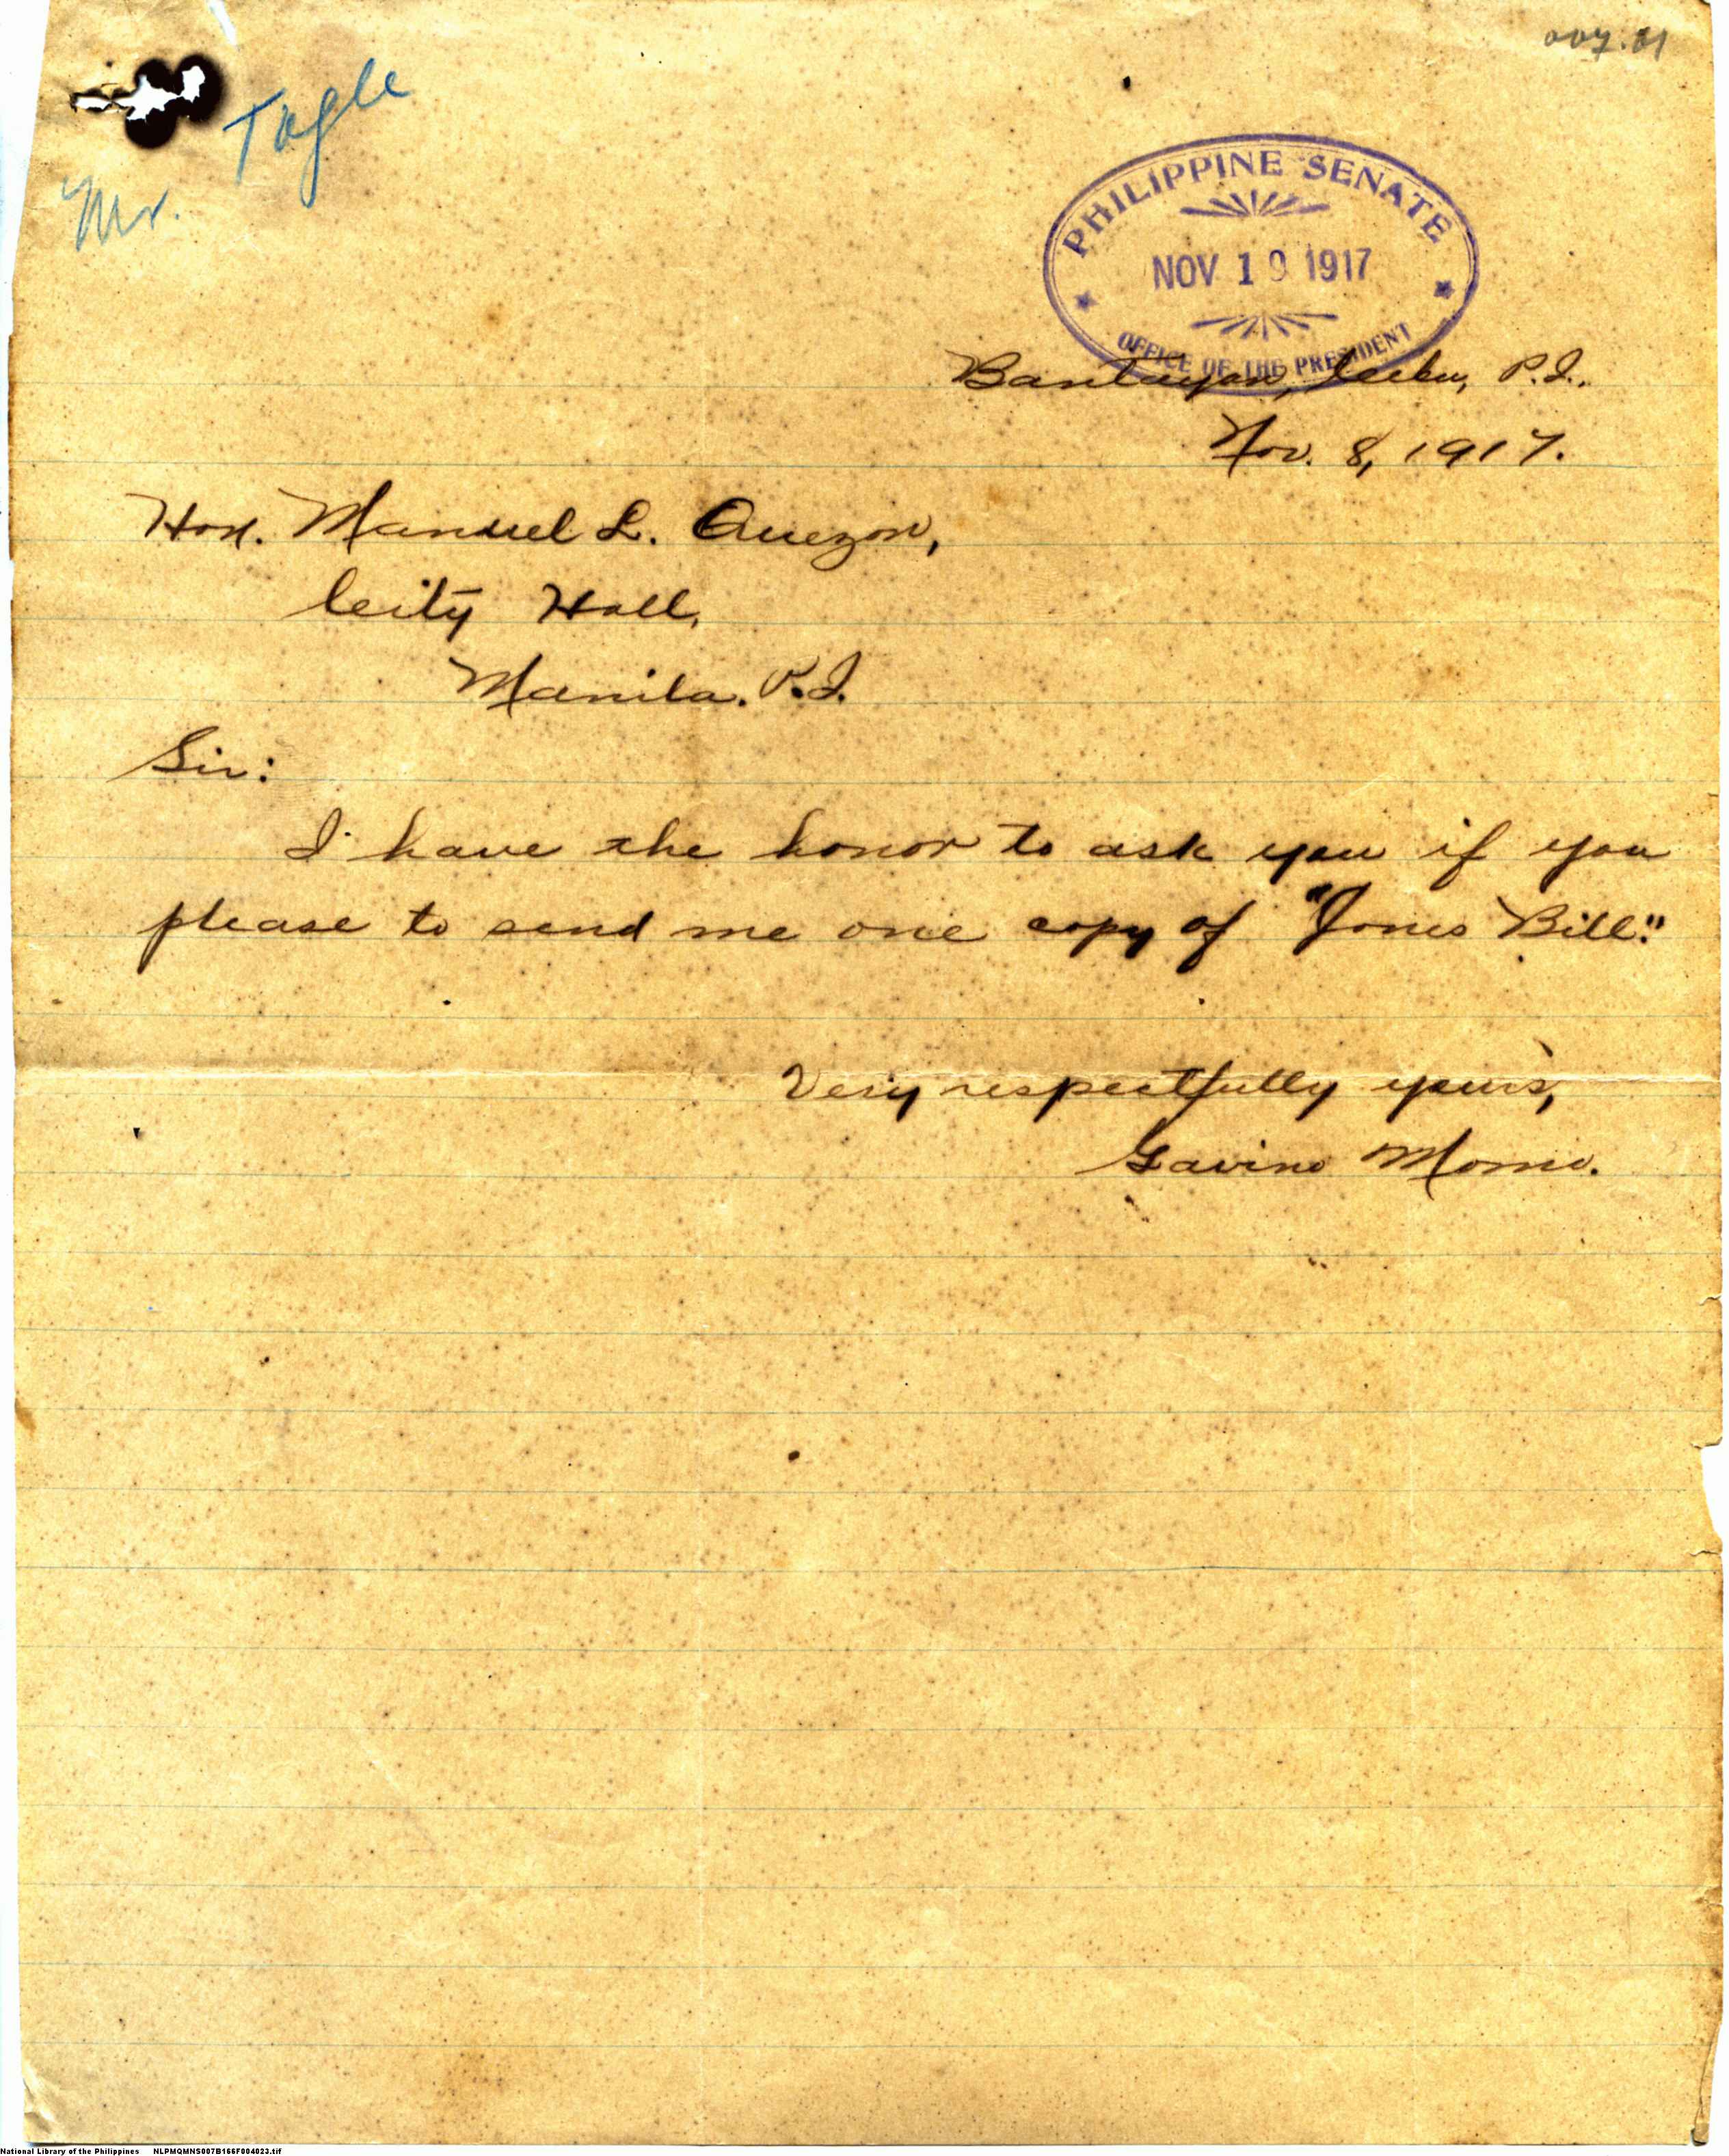 007.01
Mr. Tagle
PHILIPPINE SENATE
NOV 19 1917
OFFICE OF THE PRESIDENT
Bantayan, Cebu, P.I.,
Nov. 8, 1917.
Hon. Manuel L. Quezon,
City Hall,
Manila. P.I.
Sir:
I have the honor to ask you if you
please to send me one copy of "Jones Bill."
Very respectfully yours,
Gavino
National Library of the Philippines NLPMQMNS007B166F004023.tif